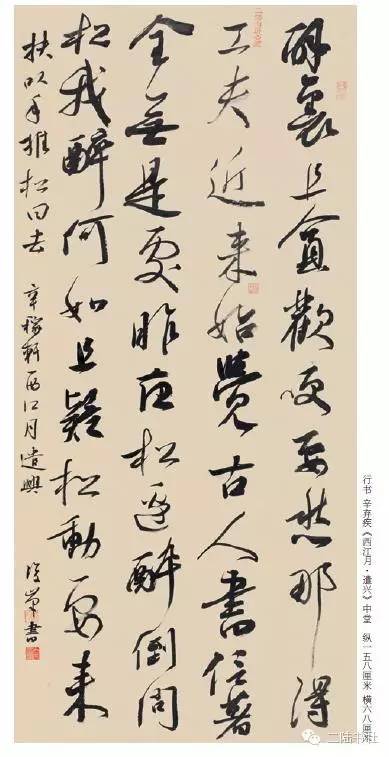 醉裏且貪歡咲要愁那得
工夫近来始覺古人書信著
全無是處昨夜松邊醉倒問
松我醉何如且疑松動要来
扶以手推松曰去 辛稼軒西江月遣興
書
行书 辛弃疾《西江月·遣兴》中堂 纵一五八厘米 横六八厘米